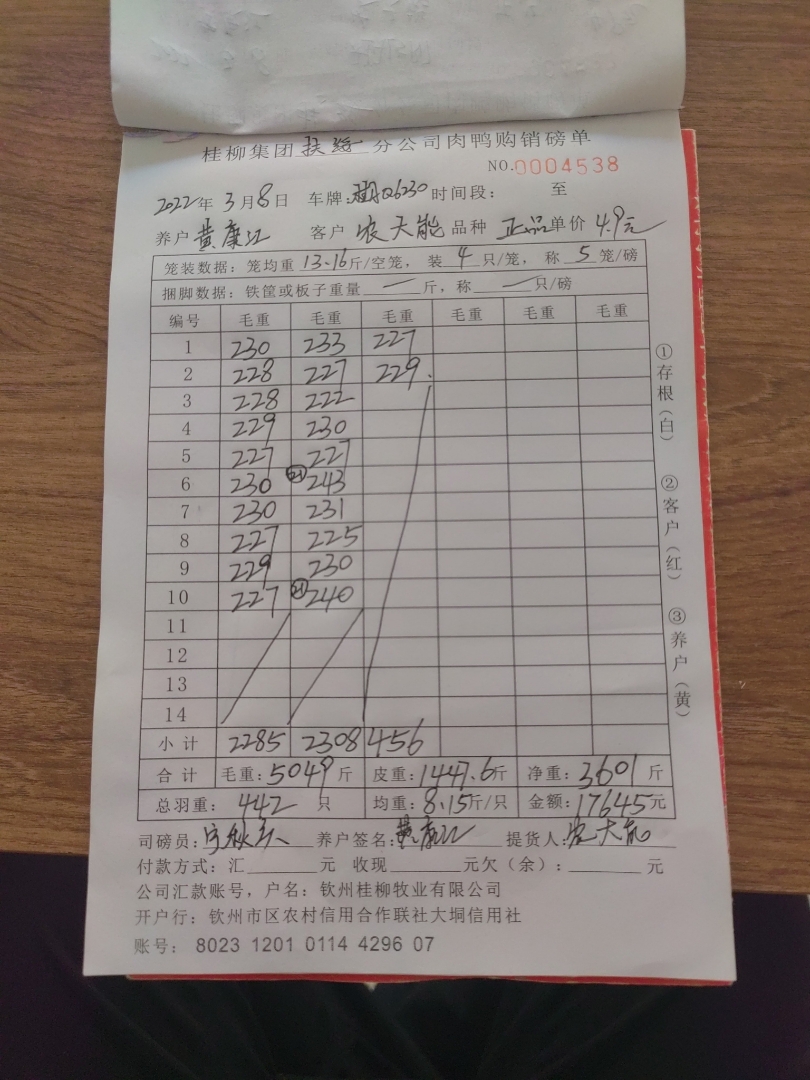 桂柳集团扶绥分公司肉鸭购销磅单
NO.0004538
2022年3月8日 车牌:Q6230时间段: 至
养户 黄康江 客户 农天能 品种 正品 单价 4.9元
笼装数据:笼均重 13.16斤/空笼,装 4 只/笼,称 5 笼/磅
捆脚数据:铁筐或板子重量 一 斤,称 一 只/磅
编号 毛重 毛重 毛重 毛重 毛重 毛重
1 230 233 227
2 228 227 229.
3 228 222
4 229 230
5 227 227
6 230 21 243
7 230 231
8 227 225
9 229 230
10 227 21 240
11
12
13
14
小计 2285 2308 456
合计 毛重:5049斤 皮重:1447.6斤 净重:3601斤
总羽重:442只 均重:8.15斤/只 金额:17645元
司磅员: 养户签名:黄康江 提货人:农天能
付款方式:汇 元 收现 元欠(余): 元
公司汇款账号,户名:钦州桂柳牧业有限公司
开户行:钦州市区农村信用合作联社大垌信用社
账号: 8023 1201 0114 4296 07
①存根(白)
②客户(红)
③养户(黄)